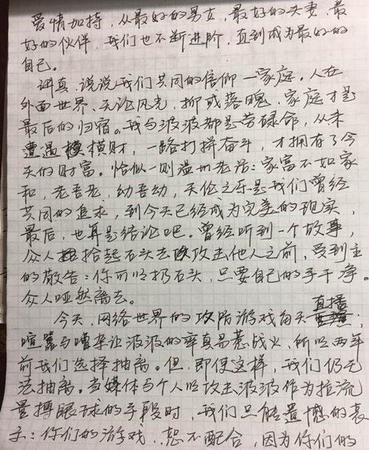 爱情加持，从最好的男女，最好的夫妻，最
好的伙伴，我们也不断进阶，直到成为最好的
自己。
讲真，说说我们共同的信仰—家庭。人在
外面世界，无论风光，抑或落魄，家庭才是
最后的归宿。我与波波都是劳碌命，从未
遭遇横财，一路打拼奋斗，才拥有了今
天的财富。恰似一则温州老话：家富不如家
和，老吾老，幼吾幼，天伦之乐是我们曾经
共同的追求，到今天已经成为完美的现实，
最后，也算是结论吧。曾经听到一个故事，
众人拾起石头去攻击他人之前，受到主
的敬告：你可以扔石头，只要自己的手干净。
众人哑然离去。
今天，网络世界的攻防游戏每天直播
喧嚣与嘈杂让波波的率真易惹战火，所以两年
前我们选择抽离。但，即便这样，我们仍无
法抽离。当媒体与个人以攻击波波作为拉流
量搏眼球的手段时，我们只能遗憾的表
示：你们的游戏，恕不配合，因为你们的